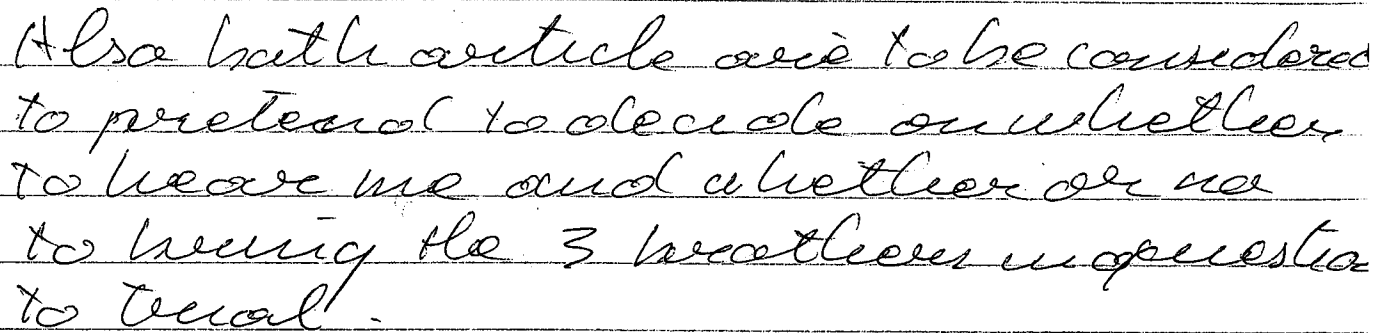 Also both article are to be considered
to pretend to decide on whether
to hear me and whether or no
to bring the 3 brothers in questio
to trial.